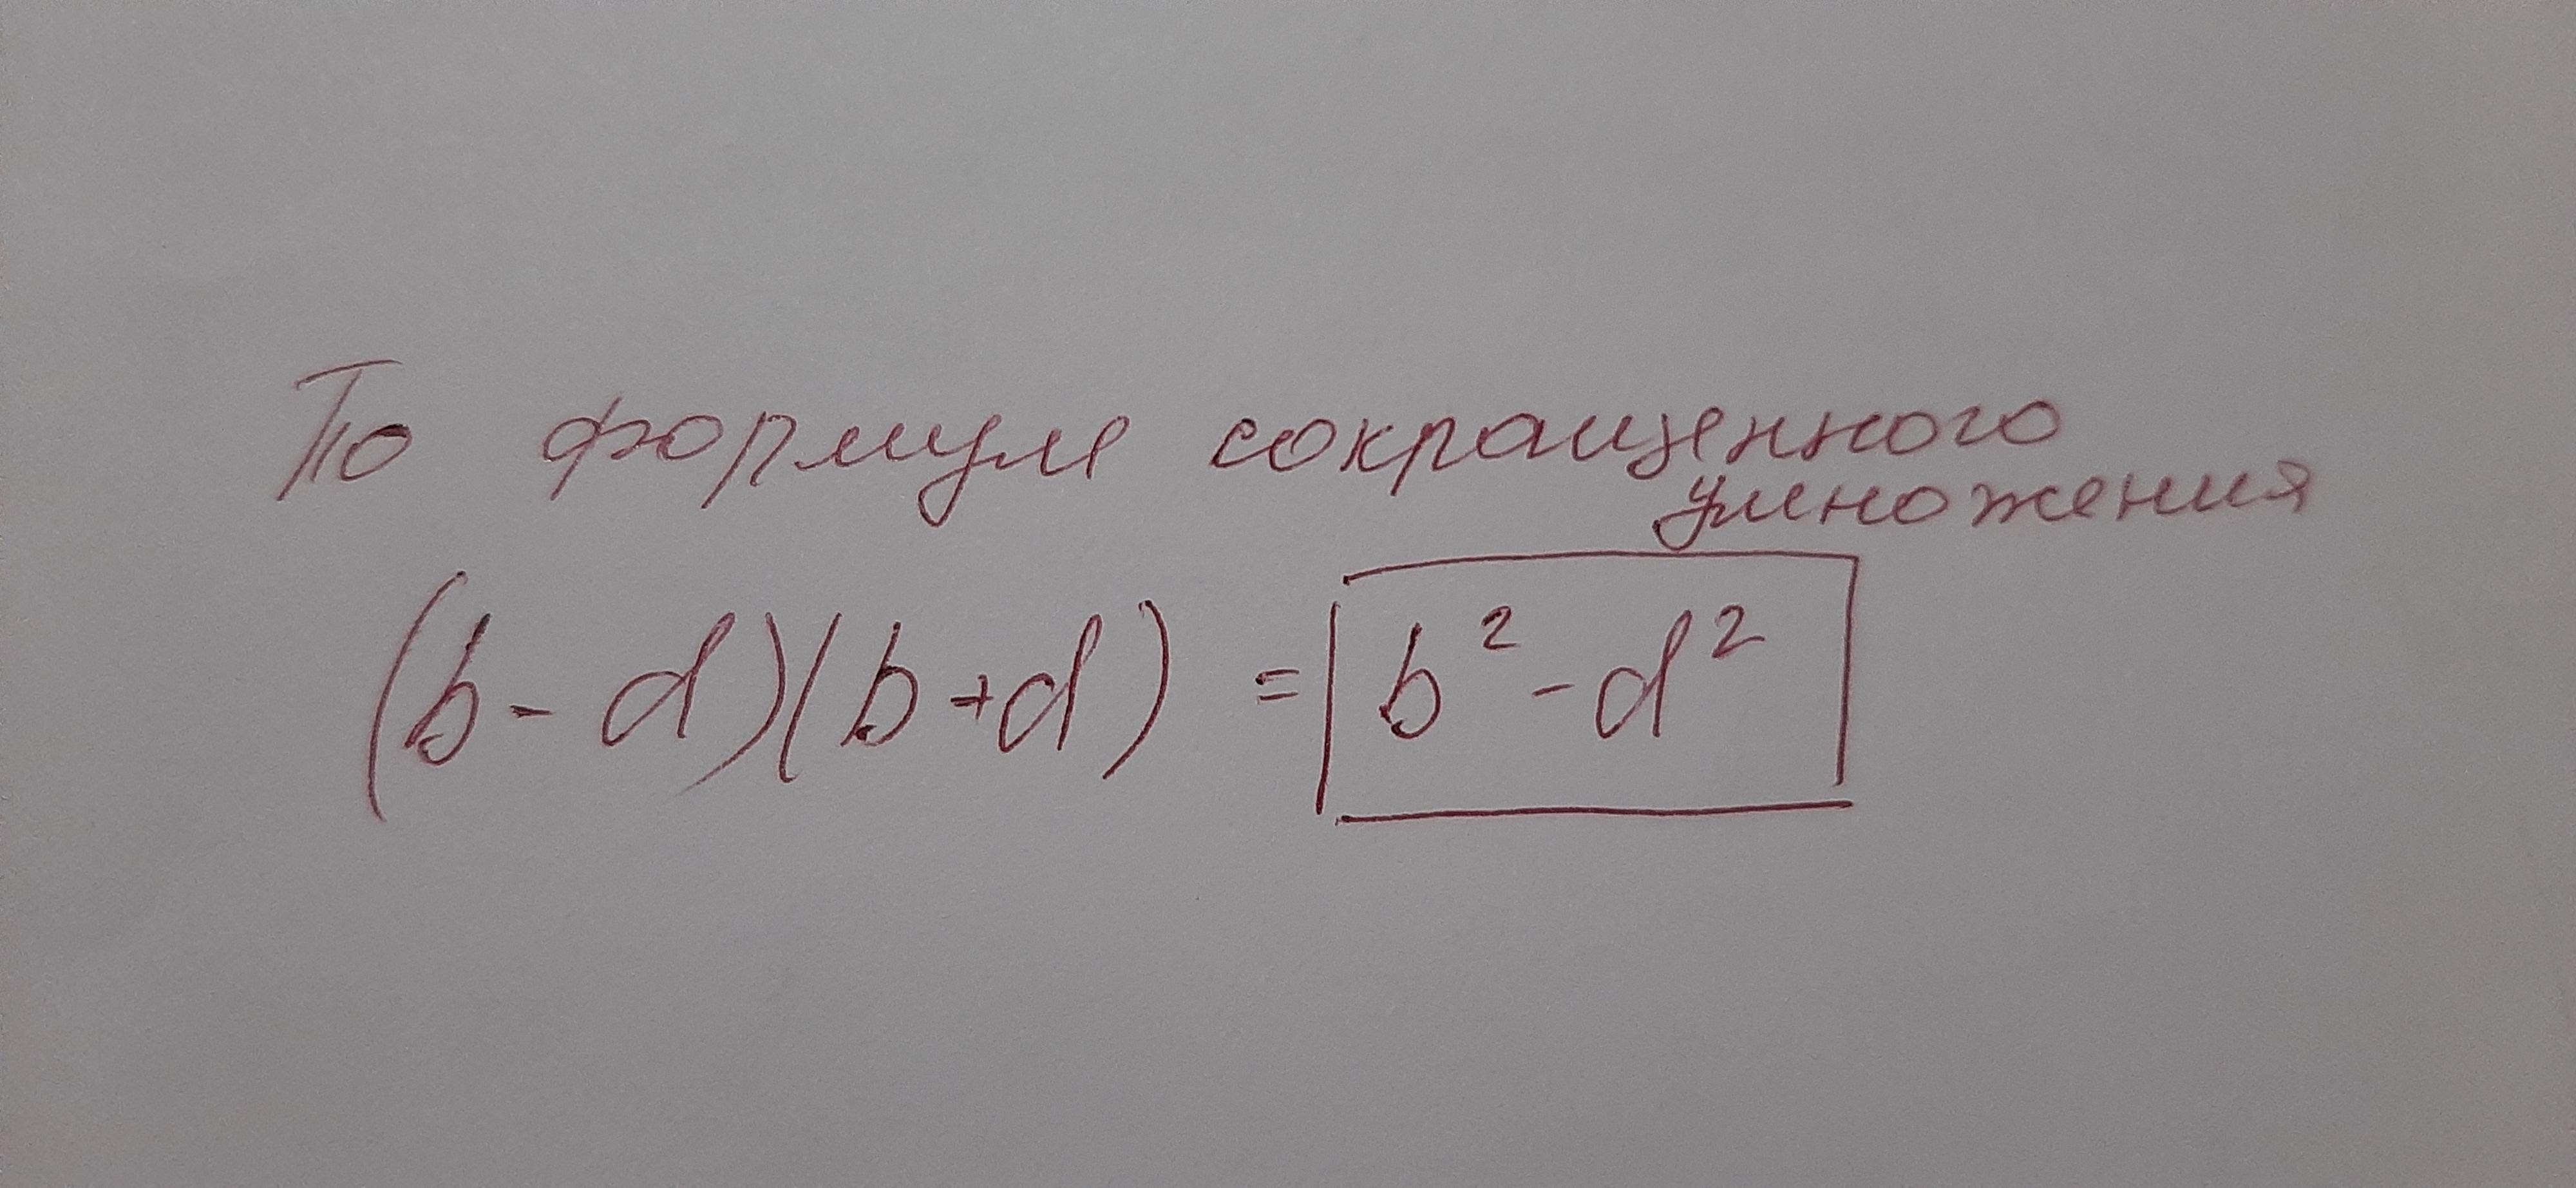 По формуле сокращенного
умножения
(b-d)(b+d) = b²-d²